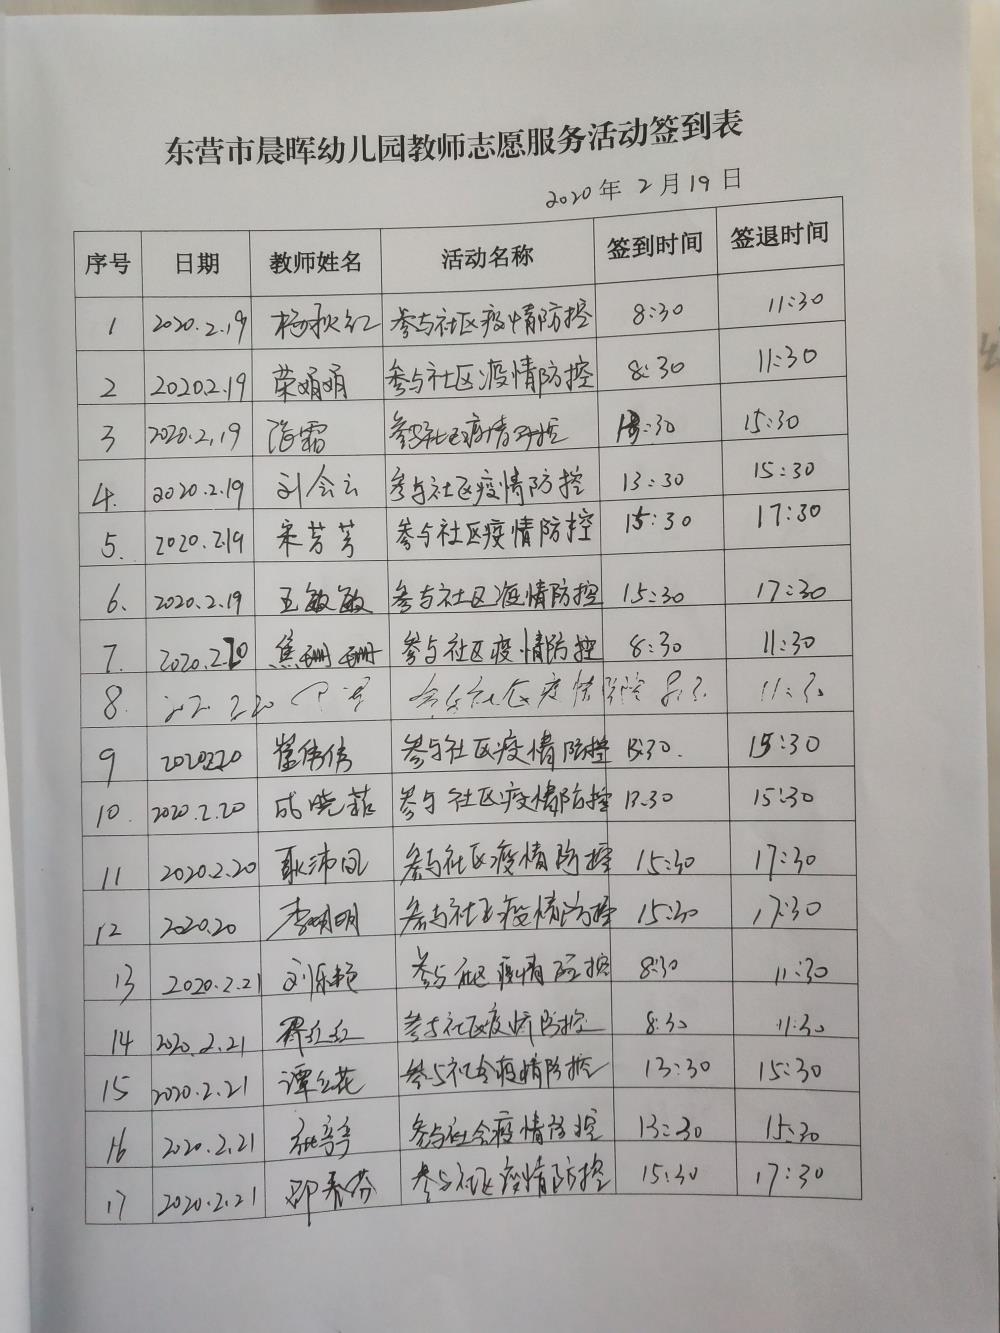 东营市晨晖幼儿园教师志愿服务活动签到表
2020年 2月19日
序号 日期 教师姓名 活动名称 签到时间 签退时间
1 2020.2.19 杨秋红 参与社区疫情防控 8:30 11:30
2 2020.2.19 荣娟娟 参与社区疫情防控 8:30 11:30
3 2020.2.19 参与社区疫情防控 13:30 15:30
4. 2020.2.19 刘会云 参与社区疫情防控 13:30 15:30
5. 2020.219 宋芳芳 参与社区疫情防控 15:30 17:30
6. 2020.2.19 王敏敏 参与社区疫情防控 15:30 17:30
7. 2020.2.20 焦珊珊 参与社区疫情防控 8:30 11:30
8. 2020.2.20 参与社区疫情防控 8:30 11:30
9 2020220 崔伟伟 参与社区疫情防控 13:30. 15:30
10. 2020.2.20 成晓菲 参与社区疫情防控 13.30 15:30
11 2020.2.20 耿沛凤 参与社区疫情防控 15:30 17:30
12 2020.20 李明明 参与社区疫情防控 15:30 17:30
13 2020.2.21 刘乐艳 参与社区疫情防控 8:30 11:30
14 2020.2.21 参与社区疫情防控 8:30 11:30
15 2020.2.21 谭立花 参与社会疫情防控 13:30 15:30
16 2020.2.21 参与社会疫情防控 13:30 15:30
17 2020.2.21 邵春芬 参与社区疫情防控 15:30 17:30